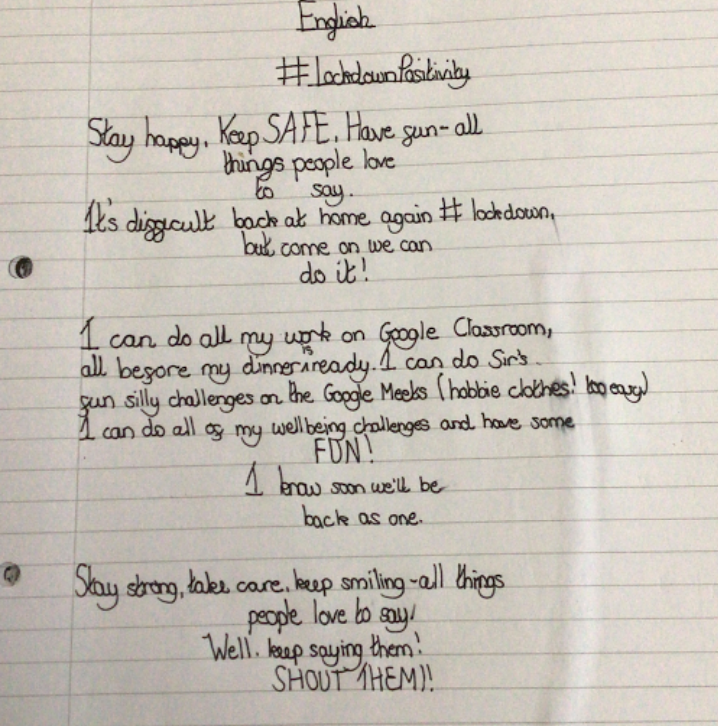 English
#LockdownPositivity
Stay happy, Keep SAFE, Have fun-all
things people love
to say.
It's difficult back at home again # lockdown,
but come on we can
do it!
I can do all my work on Google Classroom,
all before my dinner is ready. I can do Sir's
fun silly challenges on the Google Meets (hobbie clothes! too easy)
I can do all of my wellbeing challenges and have some
FUN!
I know soon we'll be
back as one.
Stay strong, take care, keep smiling-all things
people love to say!
Well, keep saying them!
SHOUT THEM!